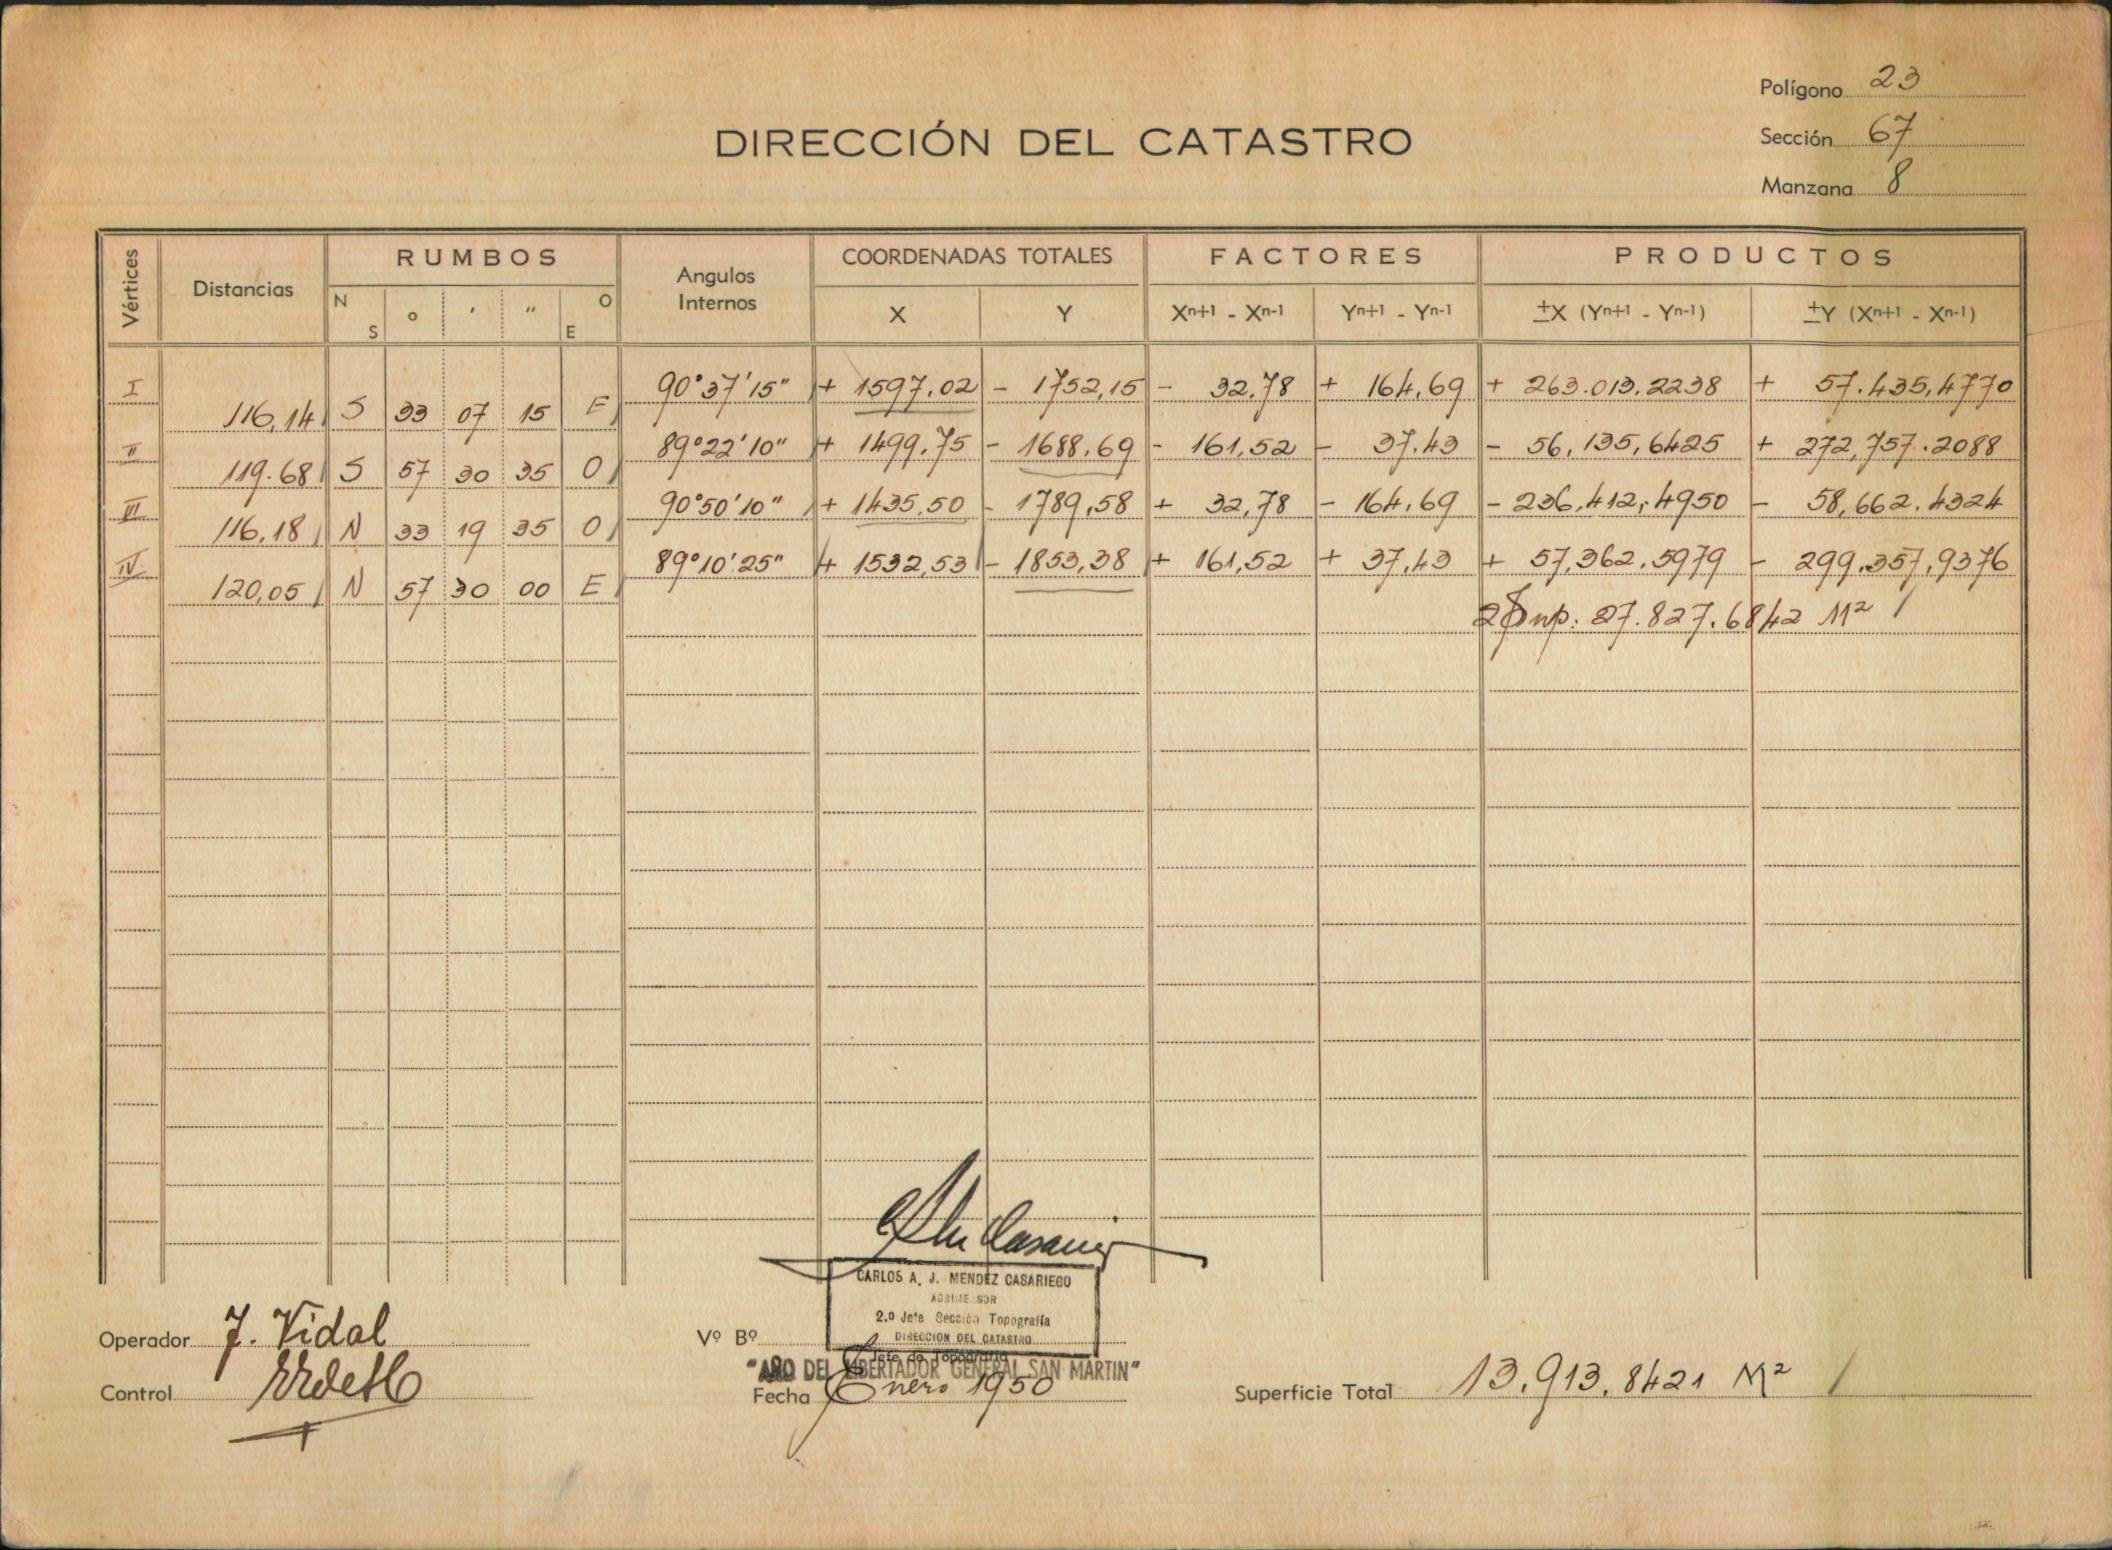 Polígono 23
DIRECCIÓN DEL CATASTRO
Sección 67
Manzana 8
Vértices Distancias RUMBOS Angulos Internos COORDENADAS TOTALES FACTORES PRODUCTOS
N S ° ' " O E X Y Xn+1 - Xn-1 Yn+1 - Yn-1 ±X (Yn+1 - Yn-1) ±Y (Xn+1 - Xn-1)
I 90°37'15" + 1597,02 - 1752,15 - 32,78 + 164,69 + 263.013,2238 + 57.435,4770
116,14 S 33 07 15 E
II 89°22'10" + 1499,75 - 1688,69 - 161,52 - 37,43 - 56,135,6425 + 272,757.2088
119.68 S 57 30 35 O
III 90°50'10" + 1435,50 - 1789,58 + 32,78 - 164,69 - 236,412,4950 - 58,662.4324
116,18 N 33 19 35 O
IV 89°10'25" + 1532,53 - 1853,38 + 161,52 + 37,43 + 57,362,5979 - 299,357,9376
120,05 N 57 30 00 E
2 Sup. 27.827.6842 M²
CARLOS A. J. MENDEZ CASARIEGO
AGRIMENSOR
2.º Jefe Sección Topografía
DIRECCION DEL CATASTRO
Operador J. Vidal
Vº Bº
Jefe de Topografía
"AÑO DEL LIBERTADOR GENERAL SAN MARTIN"
Control
Fecha Enero 1950
Superficie Total 13.913,8421 M²